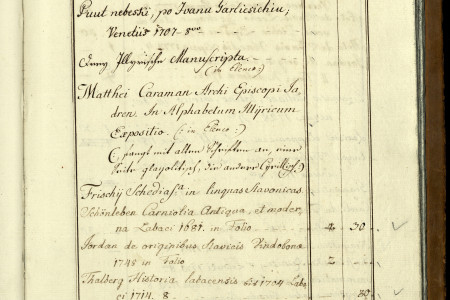 Puut nebeski, po Ivanu Garlicsichiu;
Venetiis 1707 - 8vo
Illyrische Manuscripta.
(in Elenco:)
Matthei Caraman Archi Episcopi Ja-
dren. In Alphabetum Illÿricum
Expositio. (: in Elenco:)
(: fangt mit alten Schriften an, eine
Seite glagolitisch, die andere Cyrillisch:)
Frischij Schediasm in linguas Slavonicas.
Schönleben Carniolia Antiqua, et moder-
na Labaci 1681. in Folio - 2 - 30 -
Jordan de originibus Slavicis Vindobonæ
1745 in Folio 2 -
Thalberg Historia labacensis 1704 Laba
ci 1714. 8 - 30